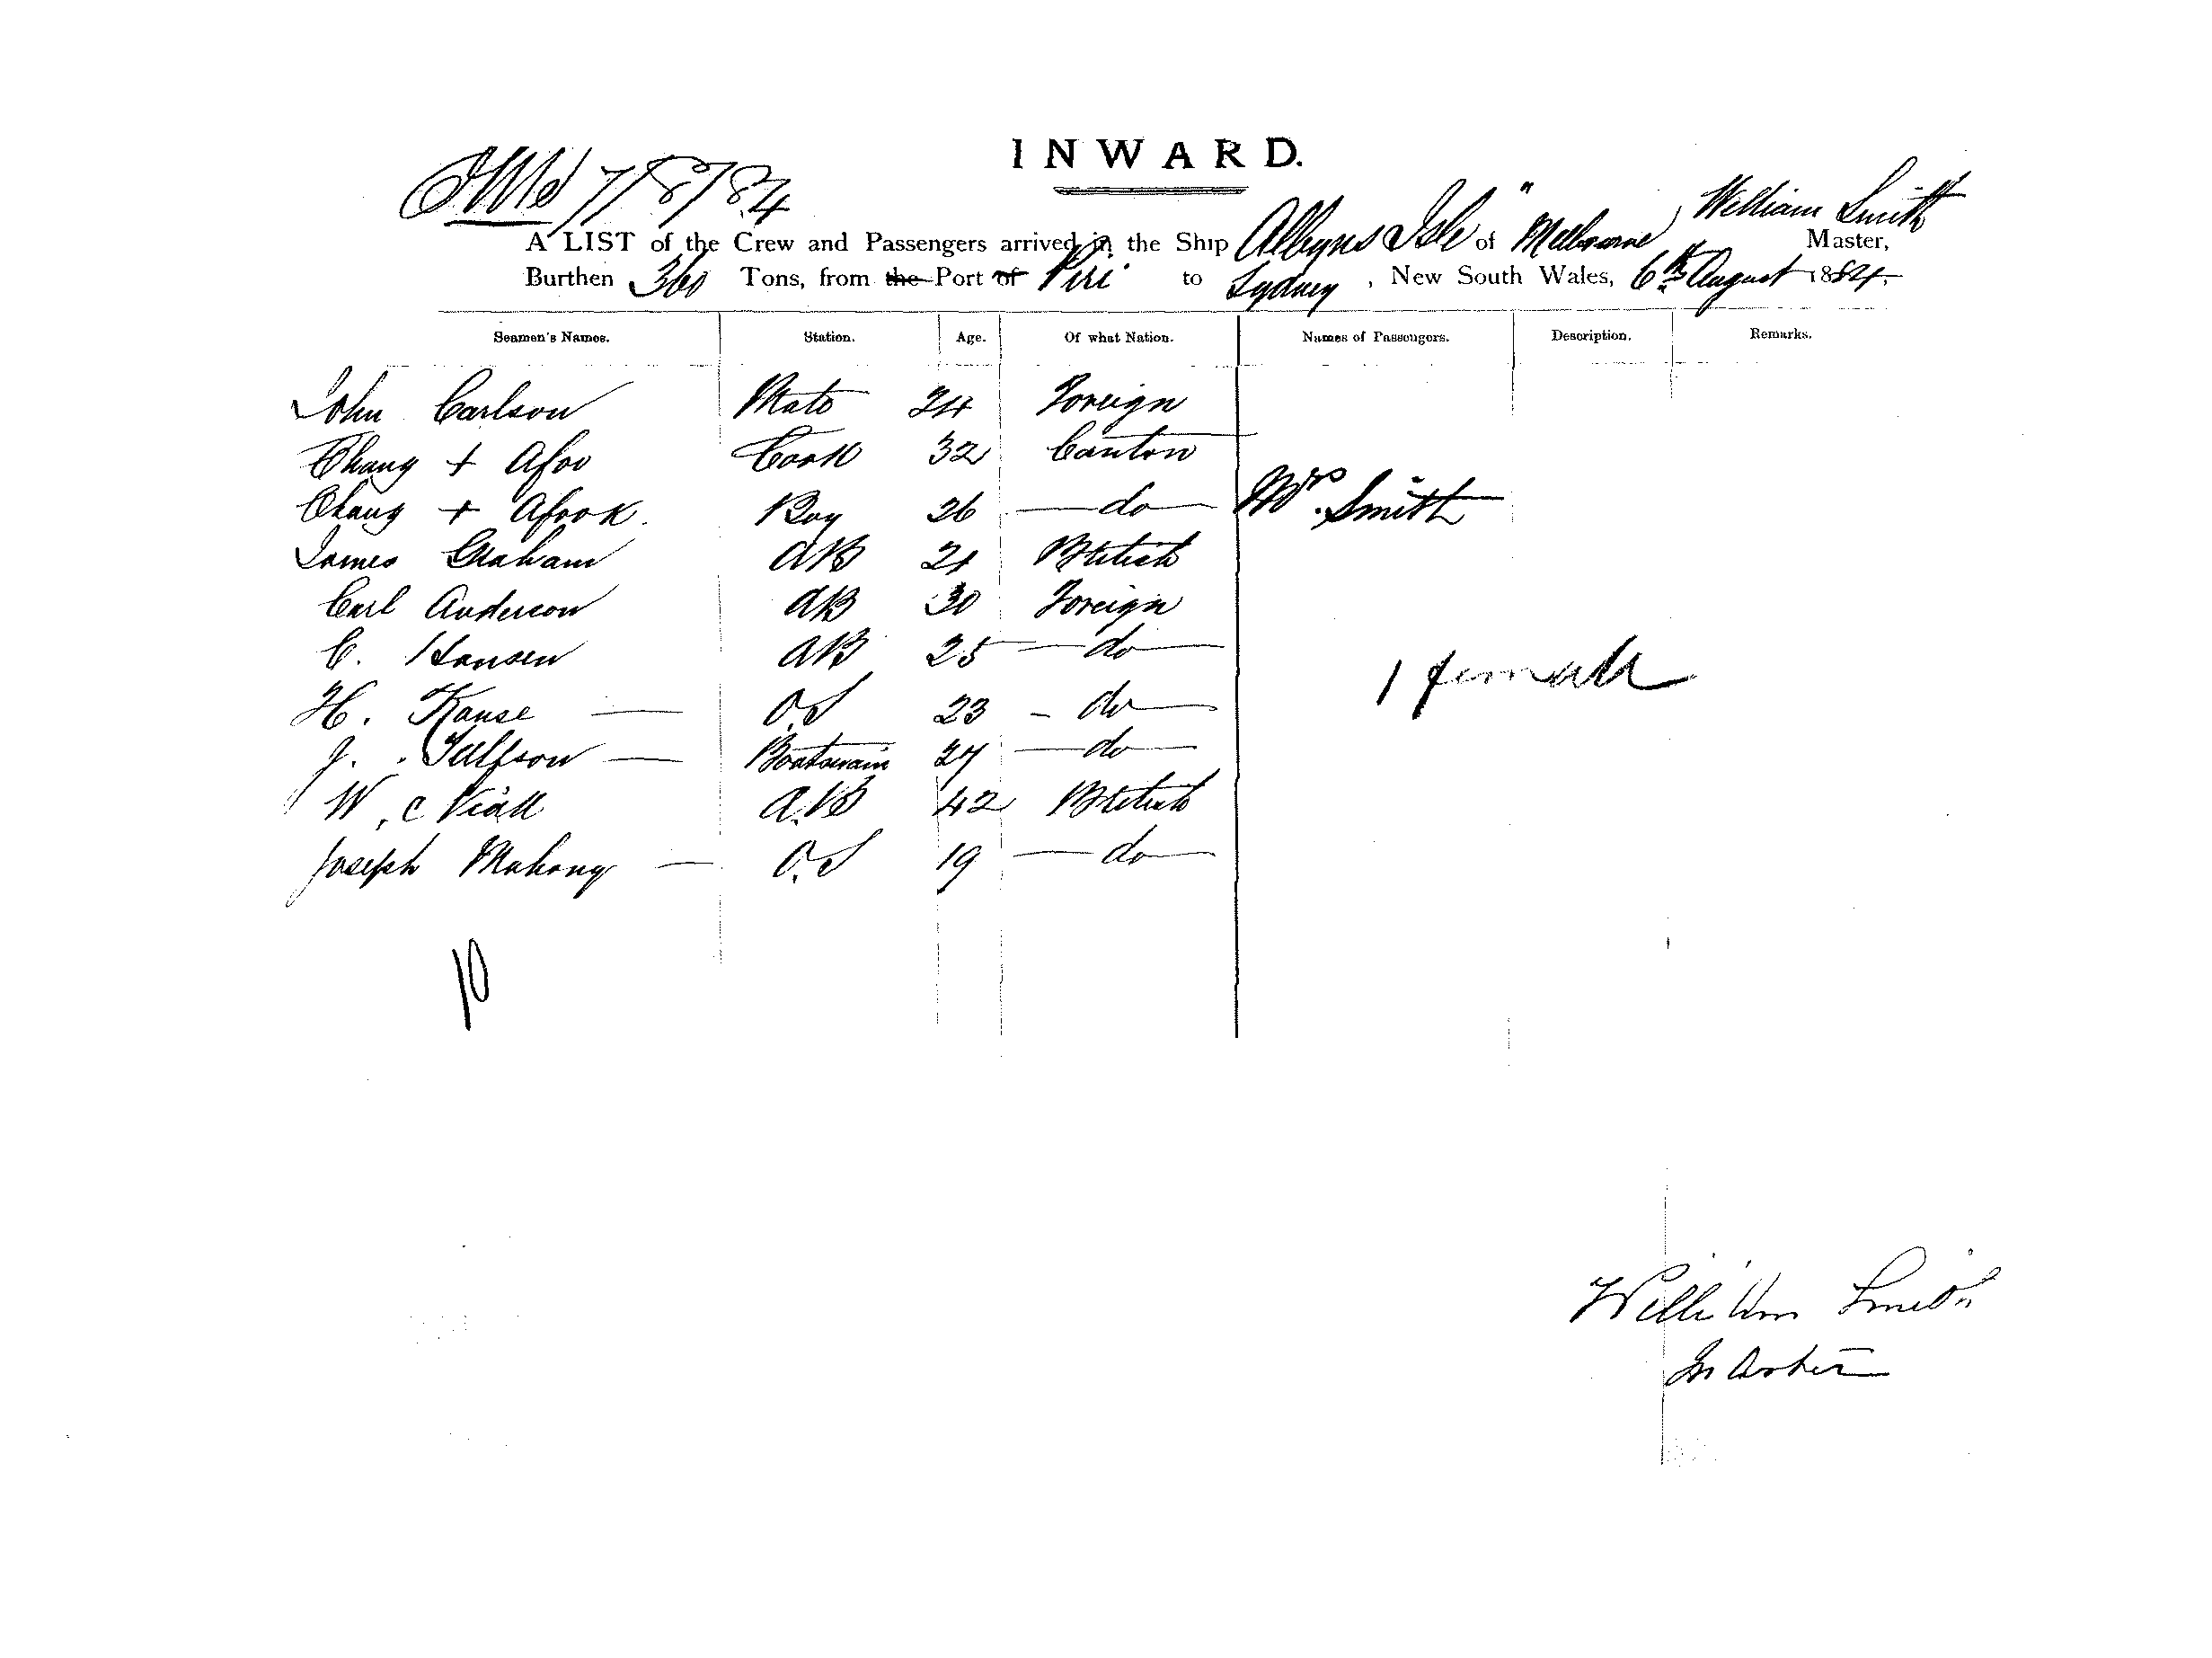 INWARD.
7/8/84
A LIST of the Crew and Passengers arrived in the Ship Albyns Isle" of Melbourne, William Smith Master,
Burthen 360 Tons, from the Port of Piri to Sydney, New South Wales, 6th August 1884.
Seamen's Names. Station. Age. Of what Nation. Names of Passengers. Description. Remarks.
John Carlson Mate 24 Foreign
Chang + Afoo Cook 32 Canton
Chang + Afook Boy 26 do Mrs. Smith
James Graham AB 21 British
Carl Anderson AB 30 Foreign
C. Hansen AB 25 do
1 female
H. Kause O.S 23 do
J. Boatswain 27 do
W. C Viall A.B 42 British
Joseph Mahony O.S 19 do
10
William Smith
Master